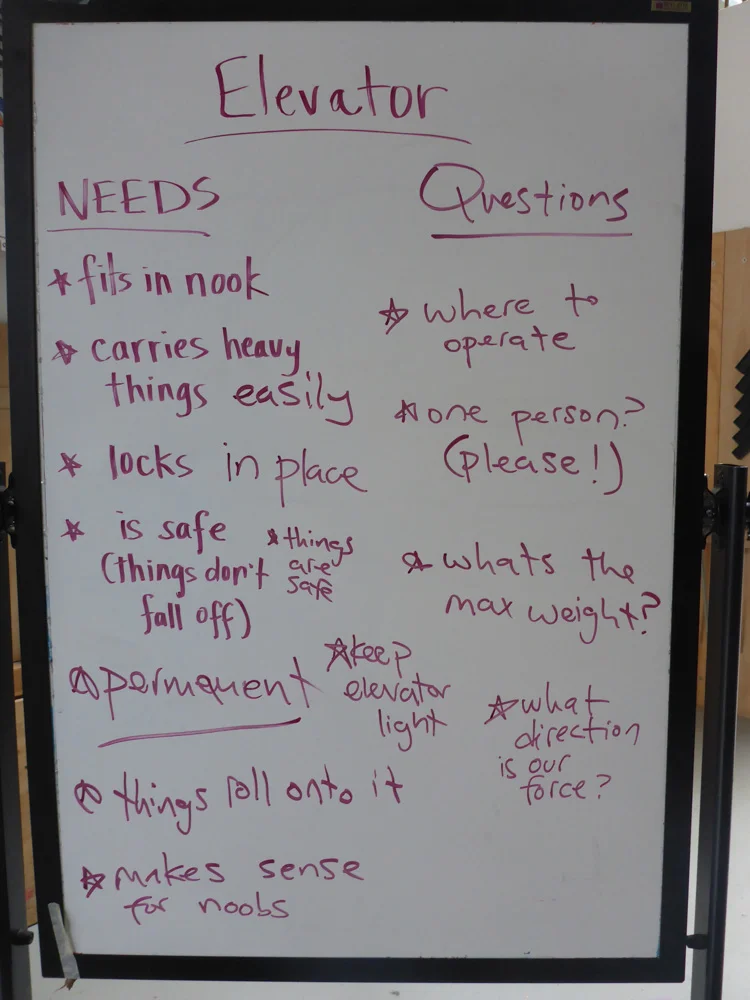 Elevator
NEEDS
* fits in nook
* carries heavy
things easily
* locks in place
* is safe
(things don't
fall off)
* things
are
safe
* permanent
* keep
elevator
light
* things roll onto it
* makes sense
for noobs
Questions
* where to
operate
* one person?
(please!)
* whats the
max weight?
* what
direction
is our
force?